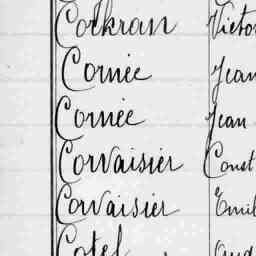 Corkran Victor
Cornée Jean
Cornée Jean
Corvaisier Const
Corvaisier Emil
Cotel